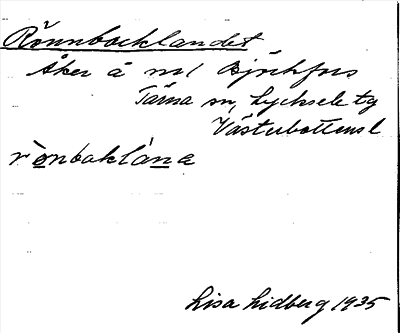 Rönnbacklandet
Åker å nr 1 Björkfors
Tärna sn, Lycksele tg
Västerbottens l
rònbaklána
Lisa Lidberg 1935